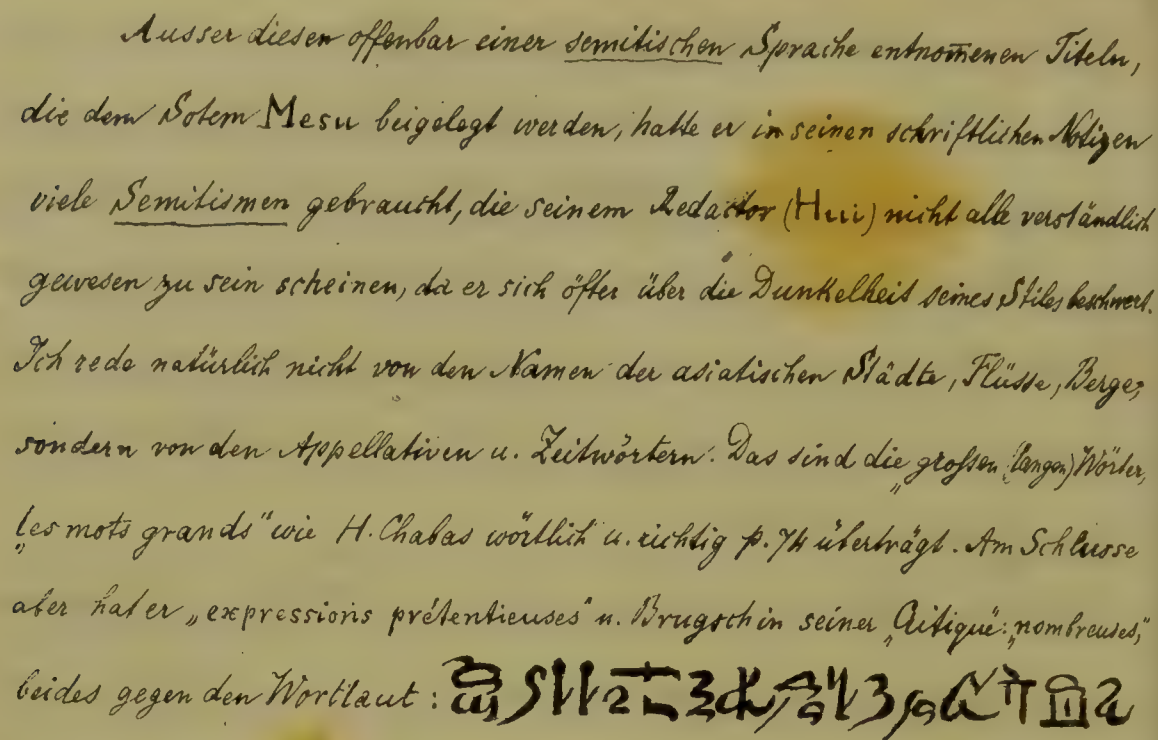 Ausser diesen offenbar einer semitischen Sprache entnom̅enen Titeln,
die dem Sotem Mesu beigelegt werden, hatte er in seinen schriftlichen Notizen
viele Semitismen gebraucht, die seinem Redactor (Hui) nicht alle verständlich
gewesen zu sein scheinen, da er sich öfter über die Dunkelheit seines Stiles beschwert.
Ich rede natürlich nicht von den Namen der asiatischen Städte, Flüsse, Berge,
sondern von den Appellativen u. Zeitwörtern. Das sind die „grossen (langen) Wörter,
„les mots grands“ wie H. Chabas wörtlich u. richtig p. 74 überträgt. Am Schlusse
aber hat er „expressions prétentieuses“ u. Brugsch in seiner „Critique“: „nombreuses,“
beides gegen den Wortlaut: